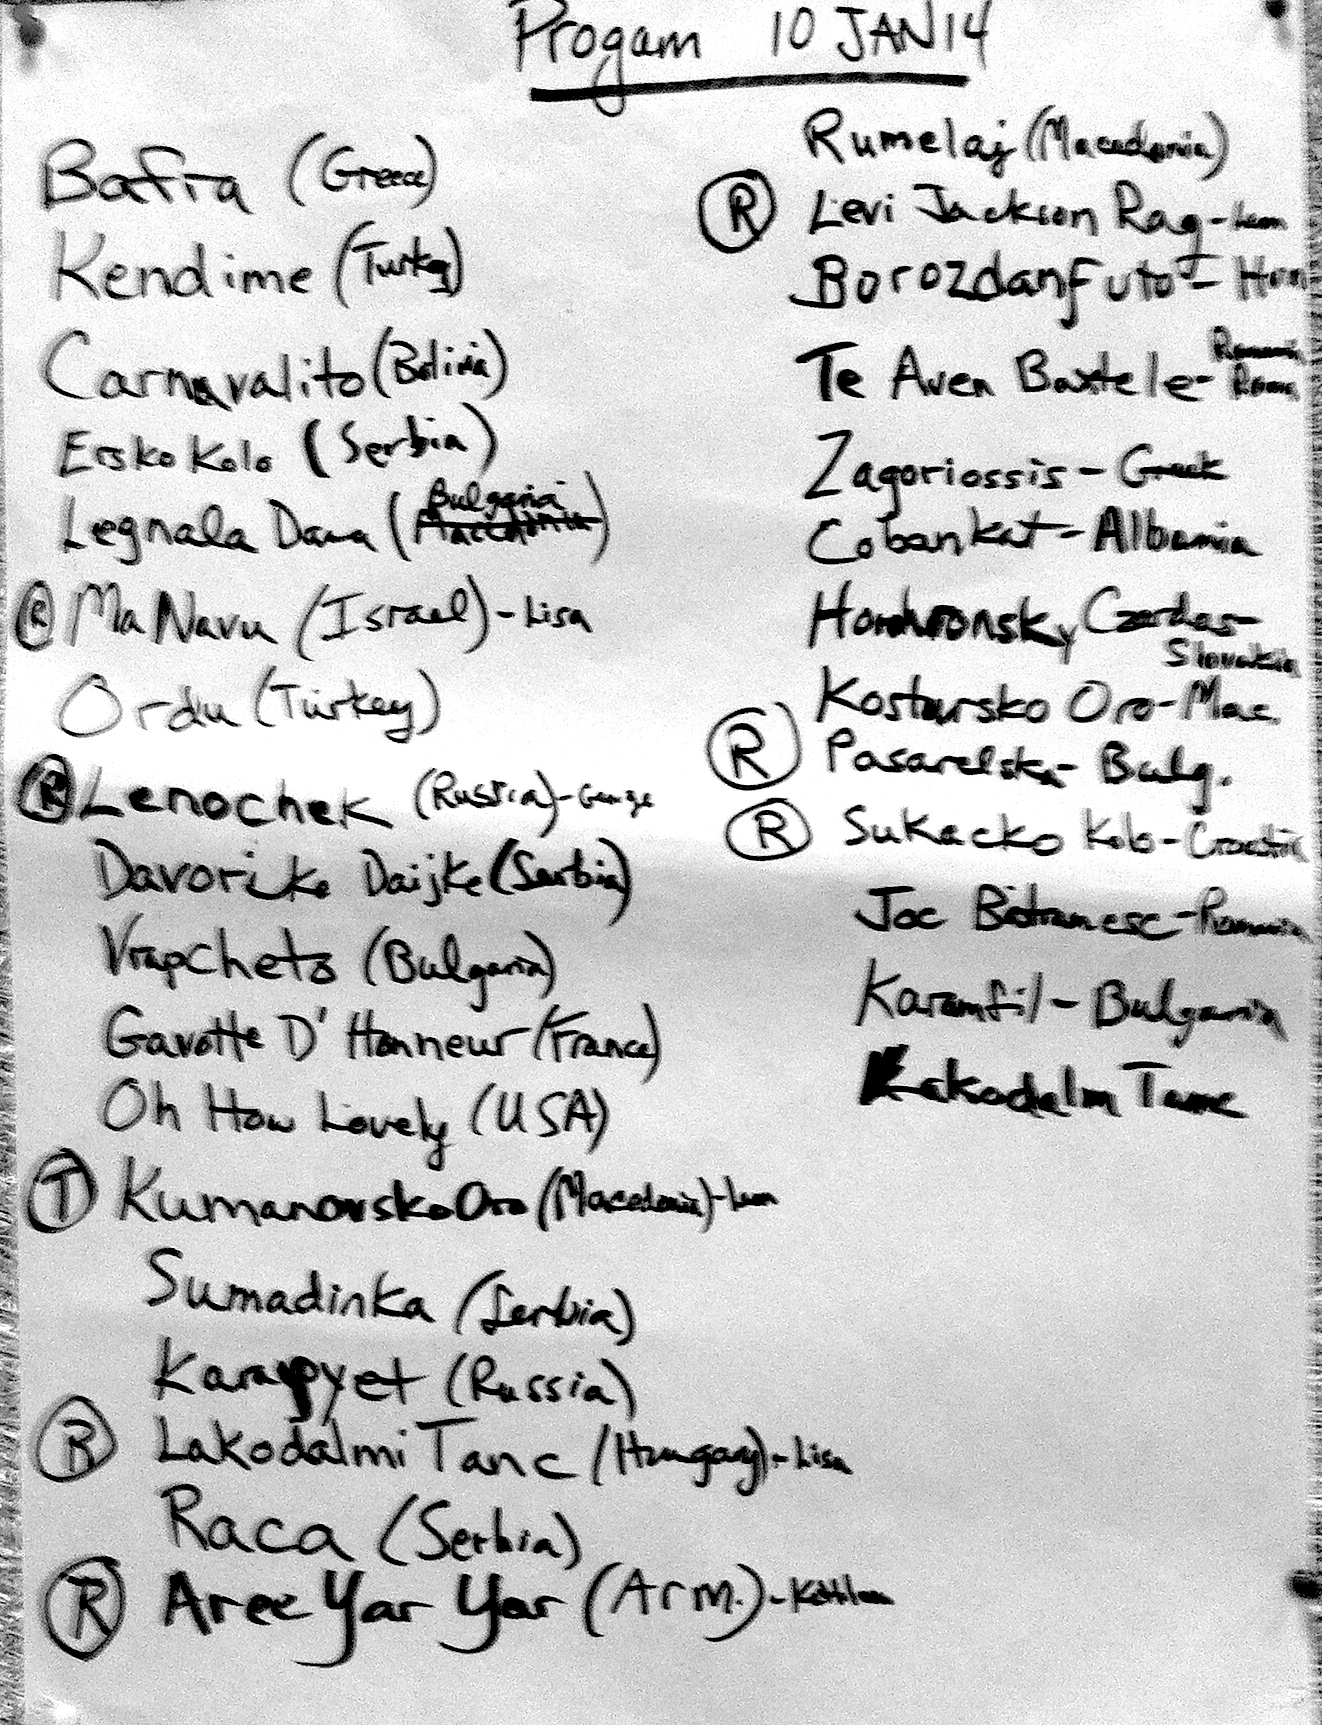 Progam 10 JAN 14
Bafra (Greece)
Kendime (Turkey)
Carnavalito (Bolivia)
Ersko Kolo (Serbia)
Bulgaria
Legnala Dana (Macedonia)
R Ma Navu (Israel) - Lisa
Ordu (Turkey)
R Lenochek (Russia) - George
Davorike Daijke (Serbia)
Vrapcheto (Bulgaria)
Gavotte D' Honneur (France)
Oh How Lovely (USA)
T Kumanovsko Oro (Macedonia) - Leon
Sumadinka (Serbia)
Karapyet (Russia)
R Lakodalmi Tanc (Hungary) - Lisa
Raca (Serbia)
R Aree Yar Yar (Arm.) - Kathleen
Rumelaj (Macedonia)
R Levi Jackson Rag - Leon
Borozdanfuto - Hun
Te Aven Baxtele - Romania
Roma
Zagoriossis - Greek
Cobankat - Albania
Horehronsky Czardas -
Slovakia
Kostursko Oro - Mac.
R Pasarelska - Bulg.
R Sukacko Kolo - Croatia
Joc Batranesc - Romania
Karamfil - Bulgaria
Lakodalm Tanc